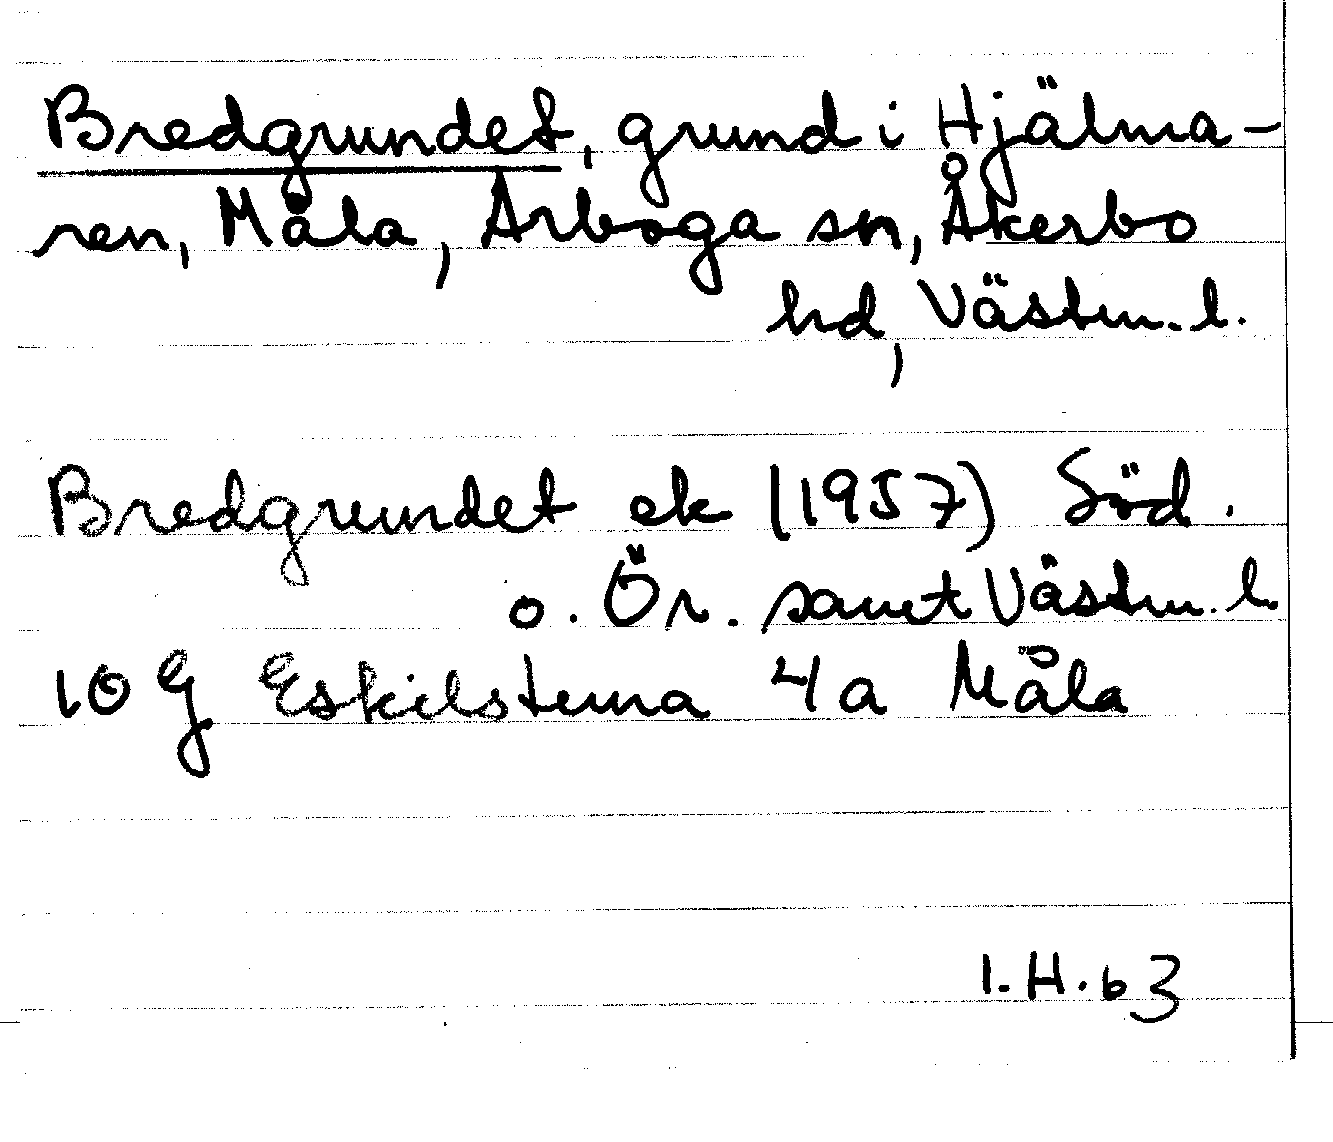 Bredgrundet, grund i Hjälma-
ren, Måla, Arboga sn, Åkerbo
hd, Västm. l.
Bredgrundet ek (1957) Söd.
o. Ör. samt Västm. l.
10 G Eskilstuna 4a Måla
I.H. 63